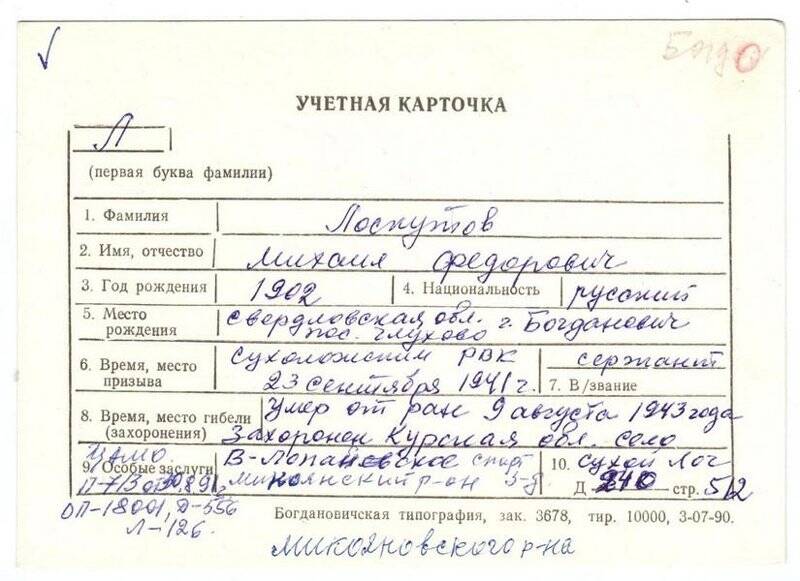 УЧЕТНАЯ КАРТОЧКА
Л
(первая буква фамилии)
1. Фамилия Лоскутов
2. Имя, отчество Михаил Федорович
3. Год рождения 1902 4. Национальность русский
5. Место рождения Свердловская обл. г. Богданович
пос. Глухово
6. Время, место призыва Сухоложским РВК
23 сентября 1941 г. 7. В/звание сержант
8. Время, место гибели (захоронения) Умер от ран 9 августа 1943 года
Захоронен Курская обл. село
9. Особые заслуги В-Лопан 10. Сухой Лог
Д 240 стр. 512
ЦАМО
ОП-18001, Д-556
Л-126.
Богдановичская типография, зак. 3678, тир. 10000, 3-07-90.
Микояновского р-на